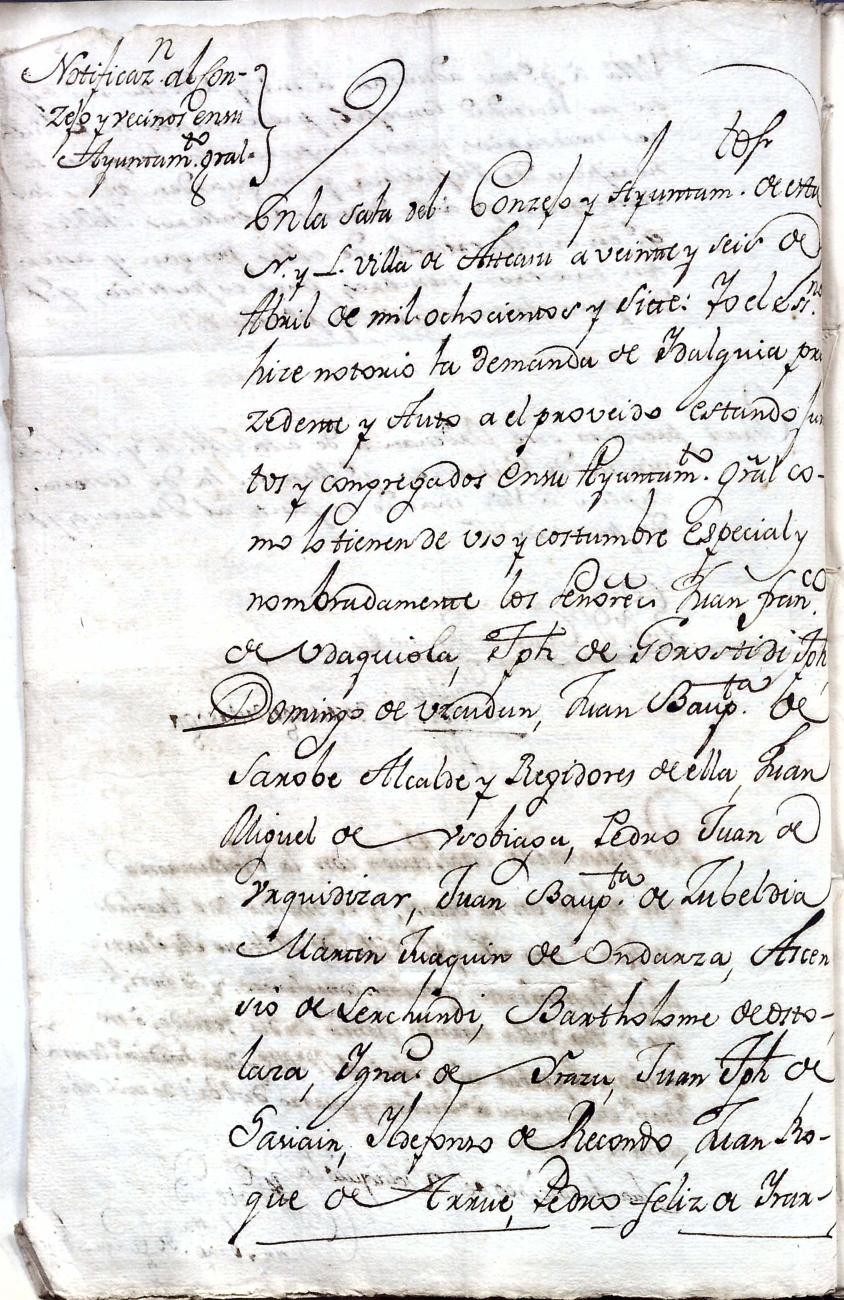 Notificazn. al Con-
zejo y vecinos en su
Ayuntamto. gral.
En la sala del Conzejo y Ayuntam. de esta
N. y L. Villa de Asteasu a veinte y seis de
Abril de mil ochocientos y siete: Yo el Essno.
hize notorio la demanda de Ydalguia pre
zedente y Auto a el proveido estando jun
tos y congregados en su Ayuntamto. gral co-
mo lo tienen de uso y costumbre Especial y
nombradamente los señores Juan Franco.
de Udaquiola, Jph de Gorostidi Jph
Domingo de Uzcudun, Juan Baupta. de
Sarobe Alcalde y Regidores de ella, Juan
Miguel de Ysobiaga, Pedro Juan de
Urquidizar, Juan Baupta. de Zubeldia
Martin Juaquin de Ondarza, Ascen
sio de Lerchundi, Bartholome de Esto-
laza, Ygnao. de Yrazu, Juan Jph de
Sasiain, Yldefonso de Recondo, Juan Ro-
que de Arrue, Pedro Feliz de Yrar-